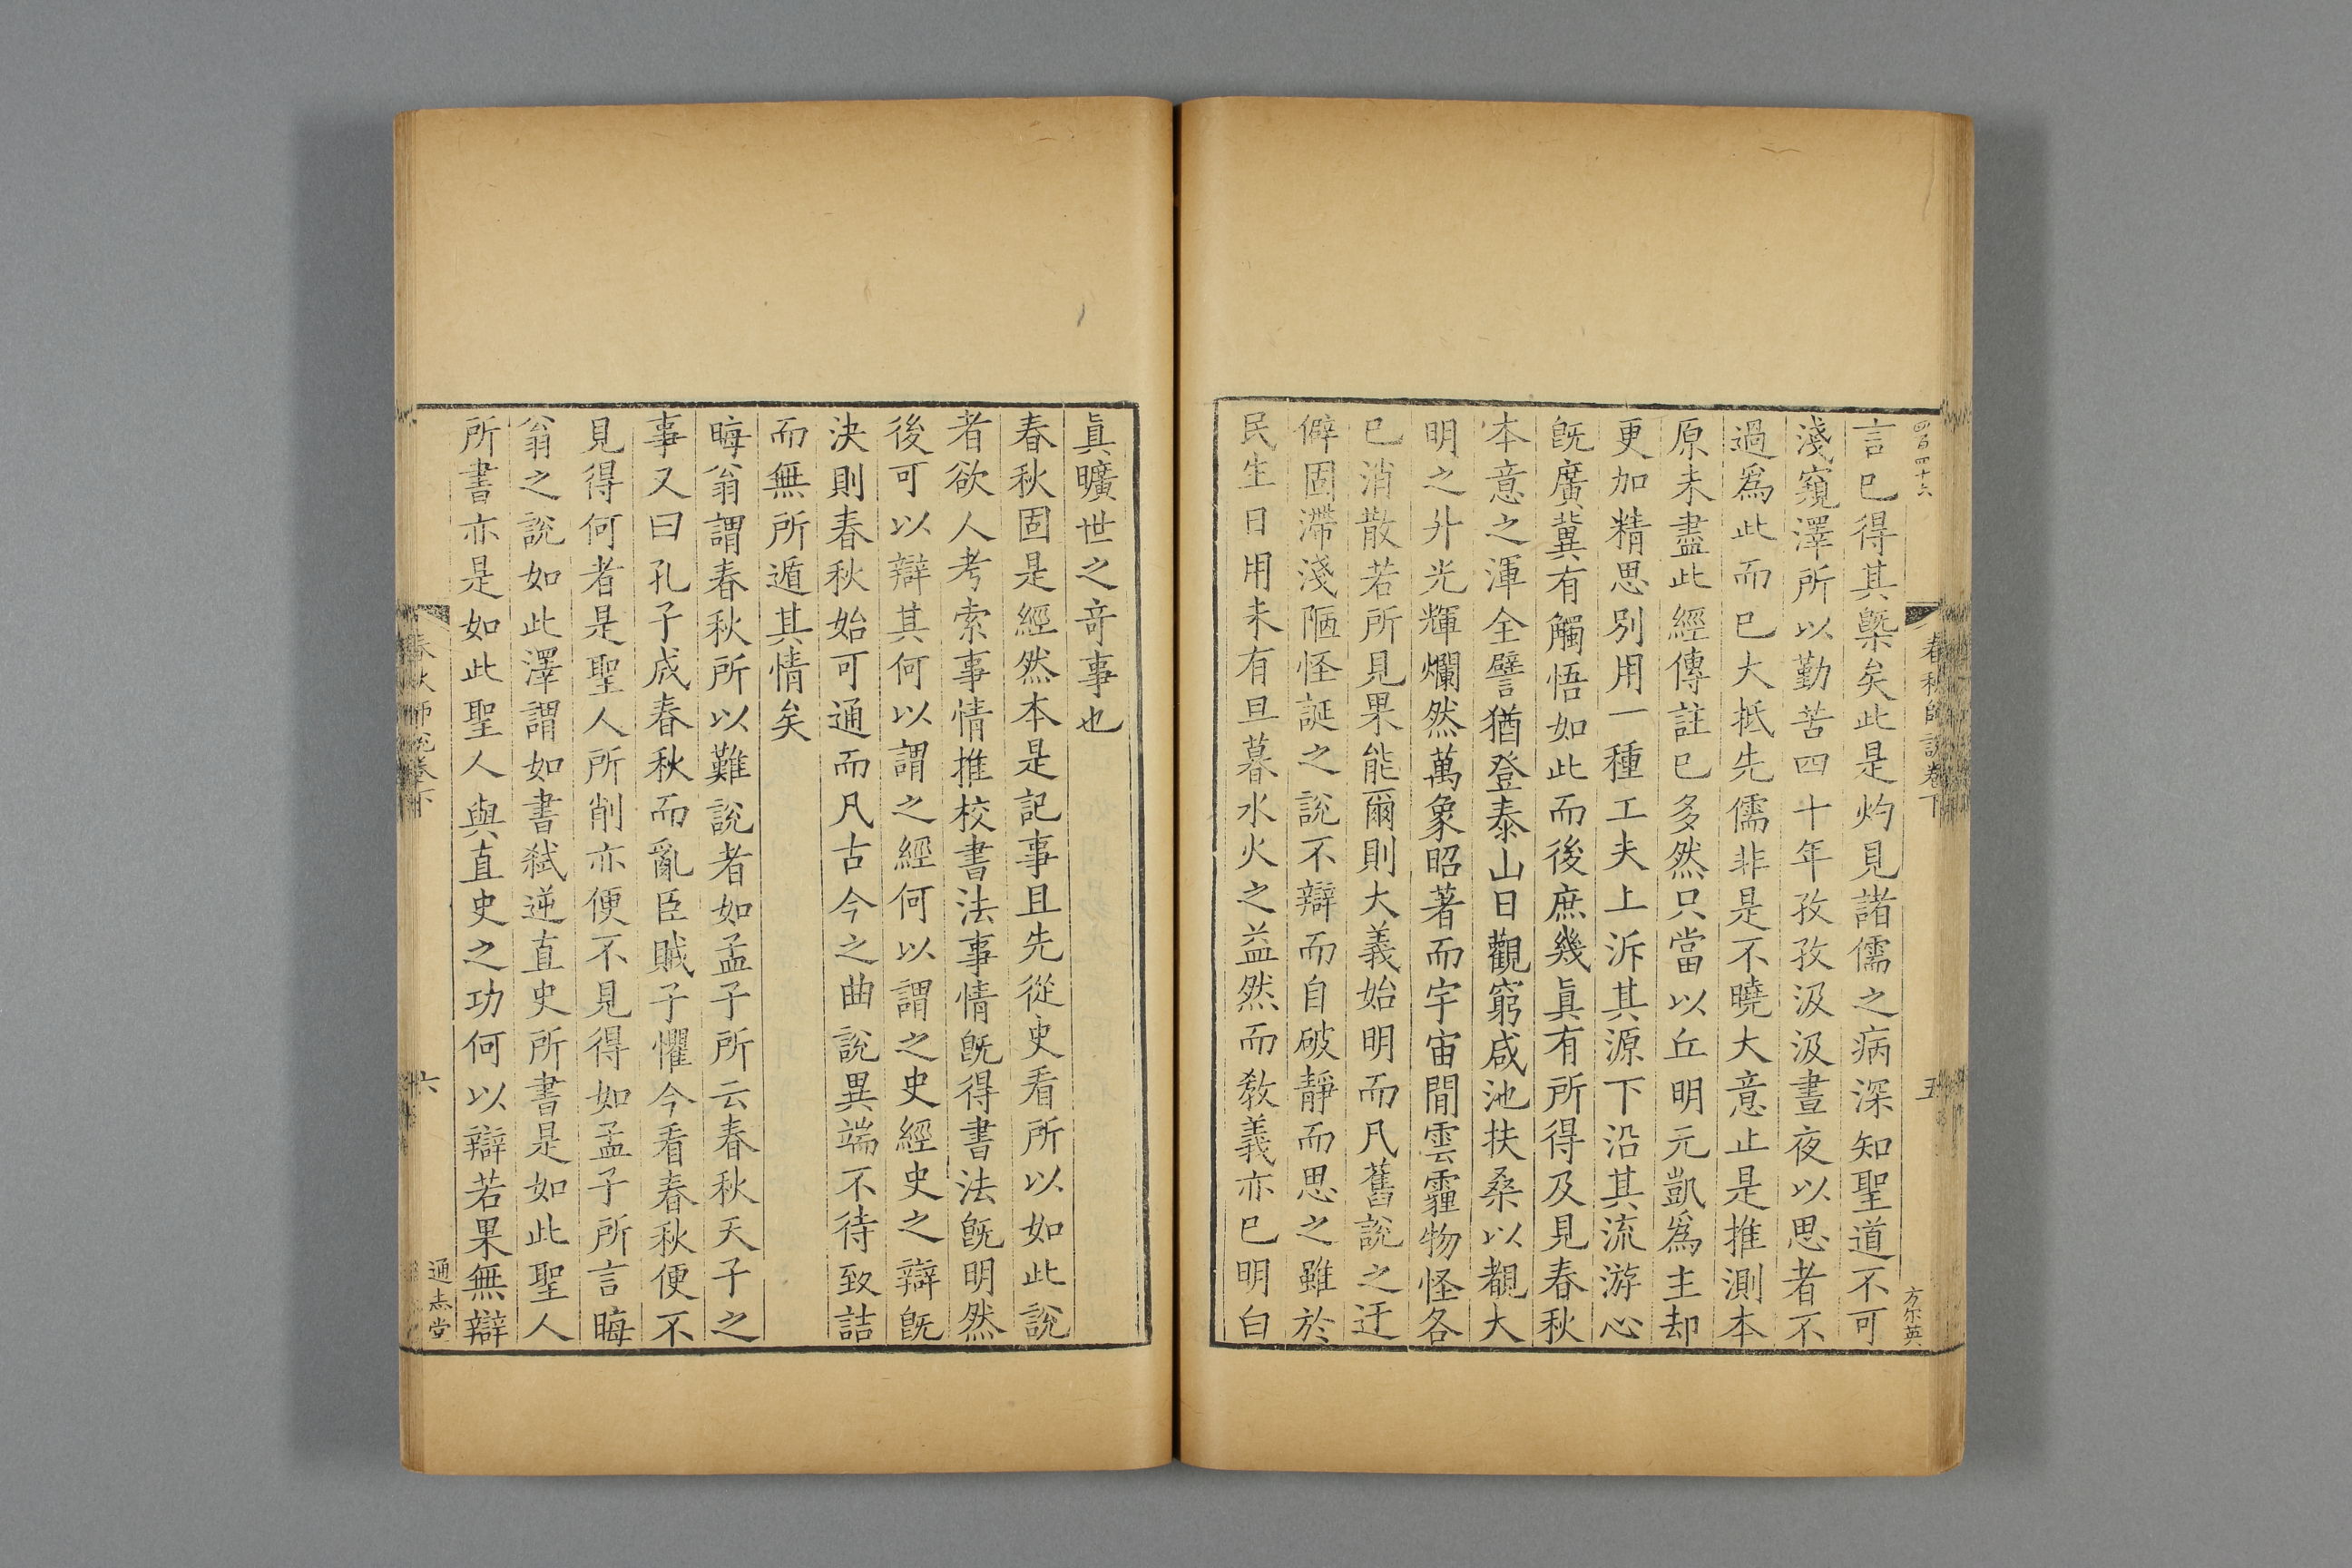 四百四十六
春秋師說卷下
五
方尔英
言已得其槩矣此是灼見諸儒之病深知聖道不可
淺窺澤所以勤苦四十年孜孜汲汲晝夜以思者不
過爲此而已大抵先儒非是不曉大意止是推測本
原未盡此經傳註已多然只當以丘明元凱爲主却
更加精思別用一種工夫上泝其源下沿其流游心
旣廣冀有觸悟如此而後庶幾眞有所得及見春秋
本意之渾全譬猶登泰山日觀窮咸池扶桑以覩大
明之升光輝爛然萬象昭著而宇宙間雲霾物怪各
已消散若所見果能爾則大義始明而凡舊說之迂
僻固滯淺陋怪誕之說不辯而自破靜而思之雖於
民生日用未有旦暮水火之益然而敎義亦已明白
眞曠世之奇事也
春秋固是經然本是記事且先從史看所以如此說
者欲人考索事情推校書法事情旣得書法旣明然
後可以辯其何以謂之經何以謂之史經史之辯旣
決則春秋始可通而凡古今之曲說異端不待致詰
而無所遁其情矣
晦翁謂春秋所以難說者如孟子所云春秋天子之
事又曰孔子成春秋而亂臣賊子懼今看春秋便不
見得何者是聖人所削亦便不見得如孟子所言晦
翁之說如此澤謂如書弑逆直史所書是如此聖人
所書亦是如此聖人與直史之功何以辯若果無辯
春秋師說卷下
六
通志堂